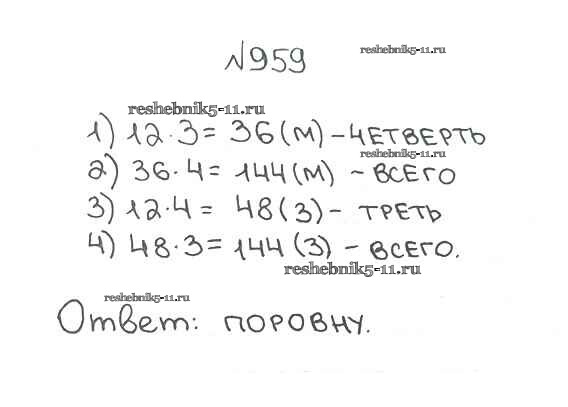 №959
reshebnik5-11.ru
reshebnik5-11.ru
1) 12·3= 36(м) – ЧЕТВЕРТЬ
reshebnik5-11.ru
2) 36·4= 144(м) – ВСЕГО
3) 12·4= 48(З) – ТРЕТЬ
4) 48·3=144(З) – ВСЕГО.
reshebnik5-11.ru
reshebnik5-11.ru
Ответ: ПОРОВНУ.